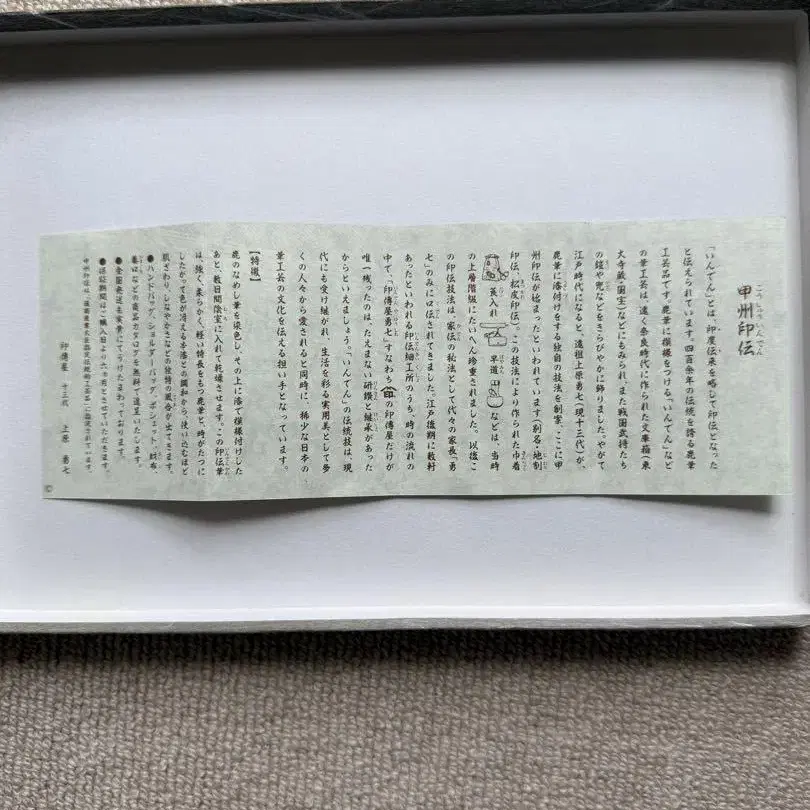 甲州印伝
こうしゅういんでん
「いんでん」とは、印度伝来を略して印伝となった
と伝えられています。四百余年の伝統を誇る鹿革
工芸品です。鹿革に模様をつける「いんでん」など
の革工芸は、遠く奈良時代に作られた文庫箱(東
大寺蔵・国宝)などにもみられ、また戦国武将たち
の鎧や兜などをきらびやかに飾りました。やがて
江戸時代になると、遠祖上原勇七(現十三代)が、
鹿革に漆付けをする独自の技法を創案、ここに甲
州印伝が始まったといわれています(別名・地割
印伝、松皮印伝)。この技法により作られた巾着
莨入れ 早道 などは、当時
の上層階級にたいへん珍重されました。以後こ
の印伝技法は、家伝の秘法として代々の家長「勇
七」のみに口伝されてきました。江戸後期に数軒
あったといわれる印伝細工所のうち、時の流れの
中で、「印傳屋勇七」すなわち の印傳屋だけが
唯一残ったのは、たえまない研鑽と継承があった
からといえましょう。「いんでん」の伝統技は、現
代にも受け継がれ、生活を彩る実用美として多
くの人々から愛されると同時に、稀少な日本の
革工芸の文化を伝える担い手となっています。
【特徴】
鹿のなめし革を染色し、その上に漆で模様付けした
あと、数日間陰室に入れて乾燥させます。この印伝革
は、強く柔らかく、軽い特長をもつ鹿革と、時がたつに
したがって色が冴える本漆との調和から、使い込むほど
肌ざわり、しなやかさなどの独特の風合が出てきます。
●ハンドバッグ、ショルダーバッグ、ポシェット、財布、
莨はなどの商品カタログを無料で進呈いたします。
●全国発送も実費にてうけたまわっております。
●保証期間はご購入日より六ヵ月とさせていただきます。
甲州印伝は、
に指定されています。
印傳屋 十三代 上原 勇七
©